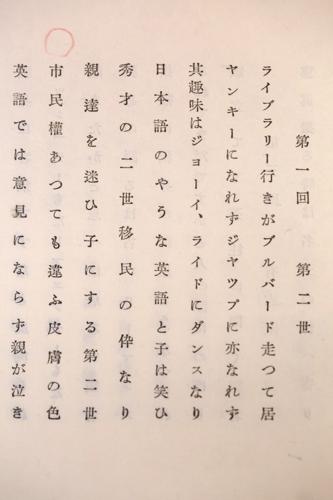 第一回　第二世
ライブラリー行きがブルバード走つて居
ヤンキーになれずジヤツプに亦なれず
其趣味はジョーイ、ライドにダンスなり
日本語のやうな英語と子は笑ひ
秀才の二世移民の倅なり
親達を迷ひ子にする第二世
市民權あつても違ふ皮膚の色
英語では意見にならず親が泣き